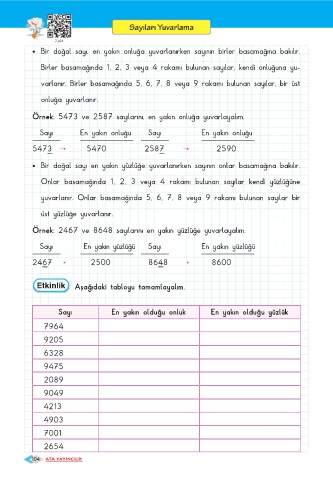 Sayıları Yuvarlama
• Bir doğal sayı, en yakın onluğa yuvarlanırken sayının birler basamağına bakılır.
Birler basamağında 1, 2, 3 veya 4 rakamı bulunan sayılar, kendi onluğuna yu-
varlanır. Birler basamağında 5, 6, 7, 8 veya 9 rakamı bulunan sayılar, bir üst
onluğa yuvarlanır.
Örnek: 5473 ve 2587 sayılarını, en yakın onluğa yuvarlayalım.
Sayı En yakın onluğu Sayı En yakın onluğu
5473 → 5470 2587 → 2590
• Bir doğal sayı en yakın yüzlüğe yuvarlanırken sayının onlar basamağına bakılır.
Onlar basamağında 1, 2, 3 veya 4 rakamı bulunan sayılar kendi yüzlüğüne
yuvarlanır. Onlar basamağında 5, 6, 7, 8 veya 9 rakamı bulunan sayılar bir
üst yüzlüğe yuvarlanır.
Örnek: 2467 ve 8648 sayılarını en yakın yüzlüğe yuvarlayalım.
Sayı En yakın yüzlüğü Sayı En yakın yüzlüğü
2467 → 2500 8648 → 8600
Etkinlik Aşağıdaki tabloyu tamamlayalım.
Sayı En yakın olduğu onluk En yakın olduğu yüzlük
7964
9205
6328
9475
2089
9049
4213
4903
7001
2654
104 ATA YAYINCILIK